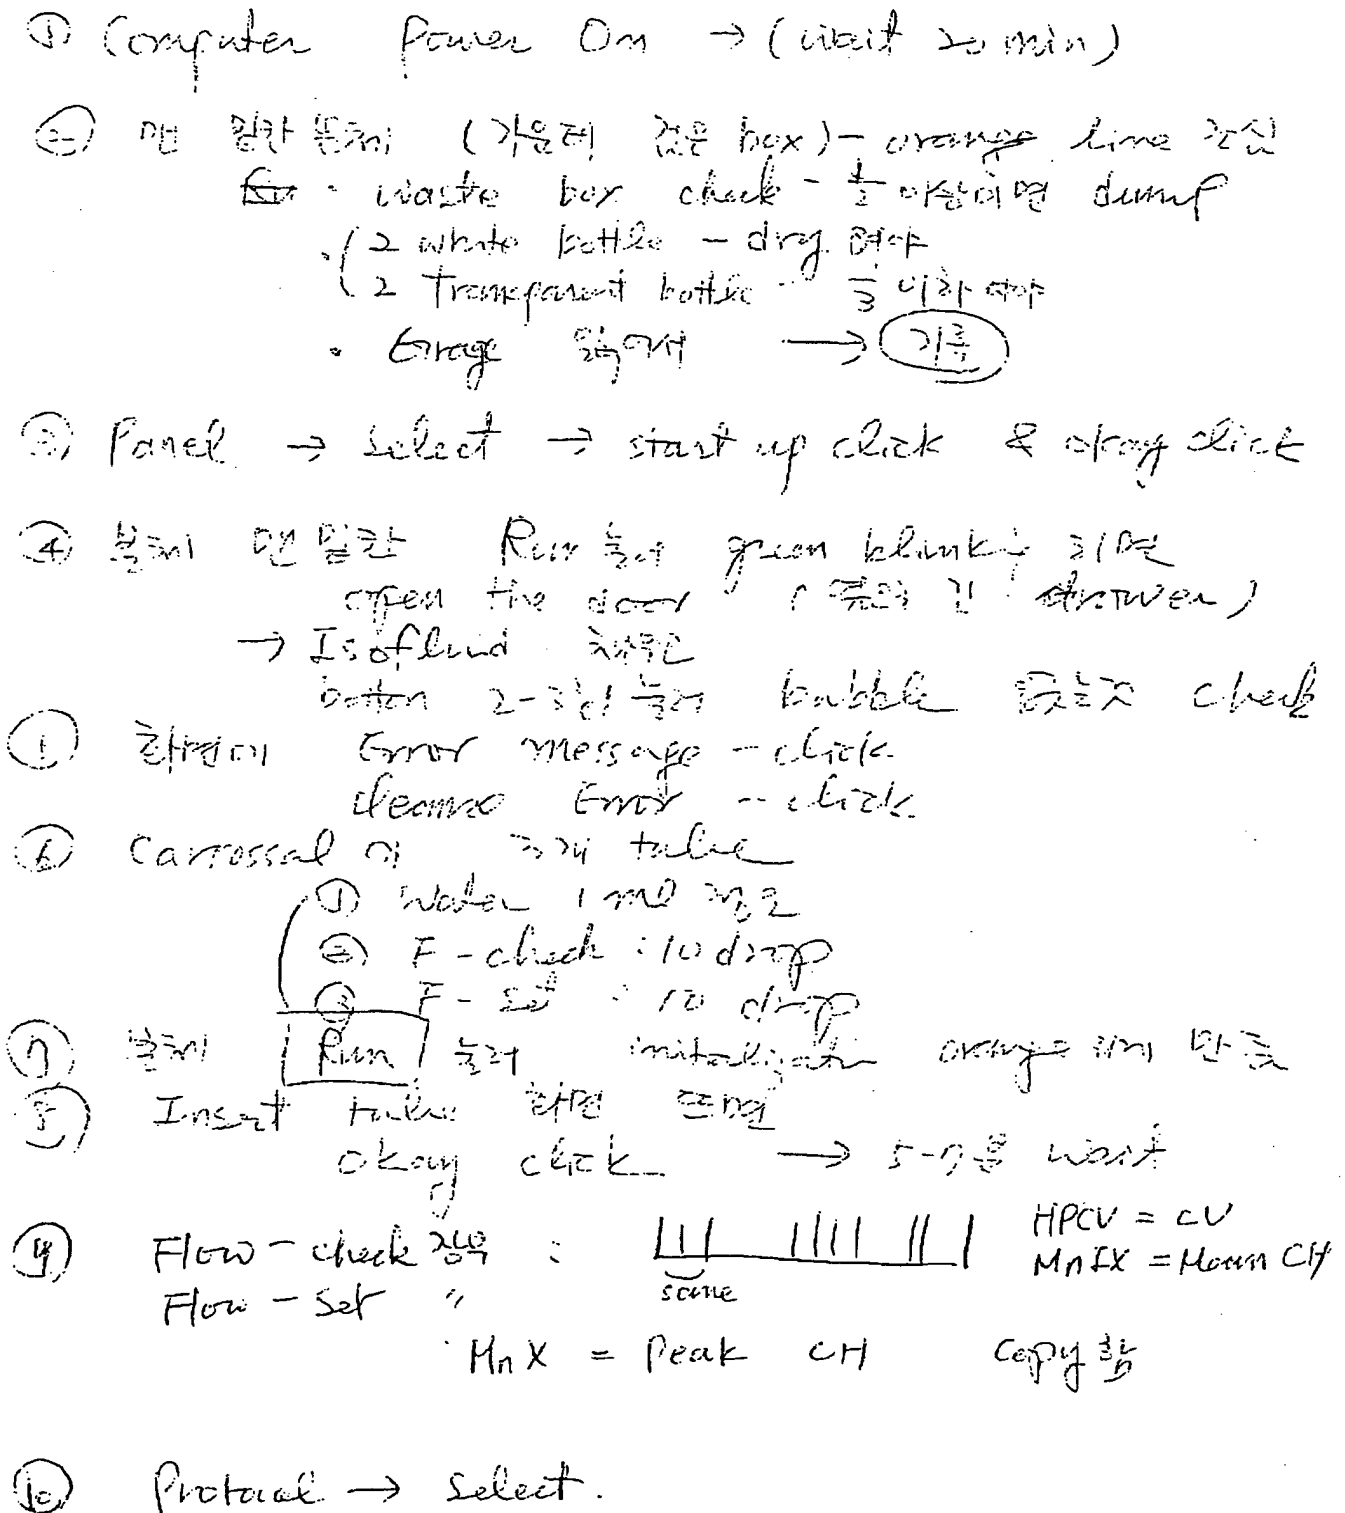 ① Computer Power On → (wait 20 min)
② 맨 밑칸 본체 (가운데 검은 box) - orange line
· waste box check - 1/2 이상이면 dump
· ( 2 white bottle - dry 여야
2 Transparent bottle - 1/3 이하
· 읽어서 → 기록
③ Panel → select → start up click & okay click
④ 본체 맨 밑칸 Run 눌러 green blinking 되면
open the door ( drawer )
→ Isofluid
button 2-3번 눌러 bubble 없는지 check
화면에 Error message - click
Error - click
⑥ Carrossal 에 3개 tube
① Water 1 ml 정도
② F - check : 10 drop
③ F - set : 10 drop
⑦ 본체 Run 눌러 orange
⑧ Insert tube 화면 뜨면
okay click → 5-7분 wait
⑨ Flow - check 경우 : HPCV = CV
same MnIX = Mean CH
Flow - Set 〃
MnX = Peak CH Copy 함
⑩ Protocol → select.